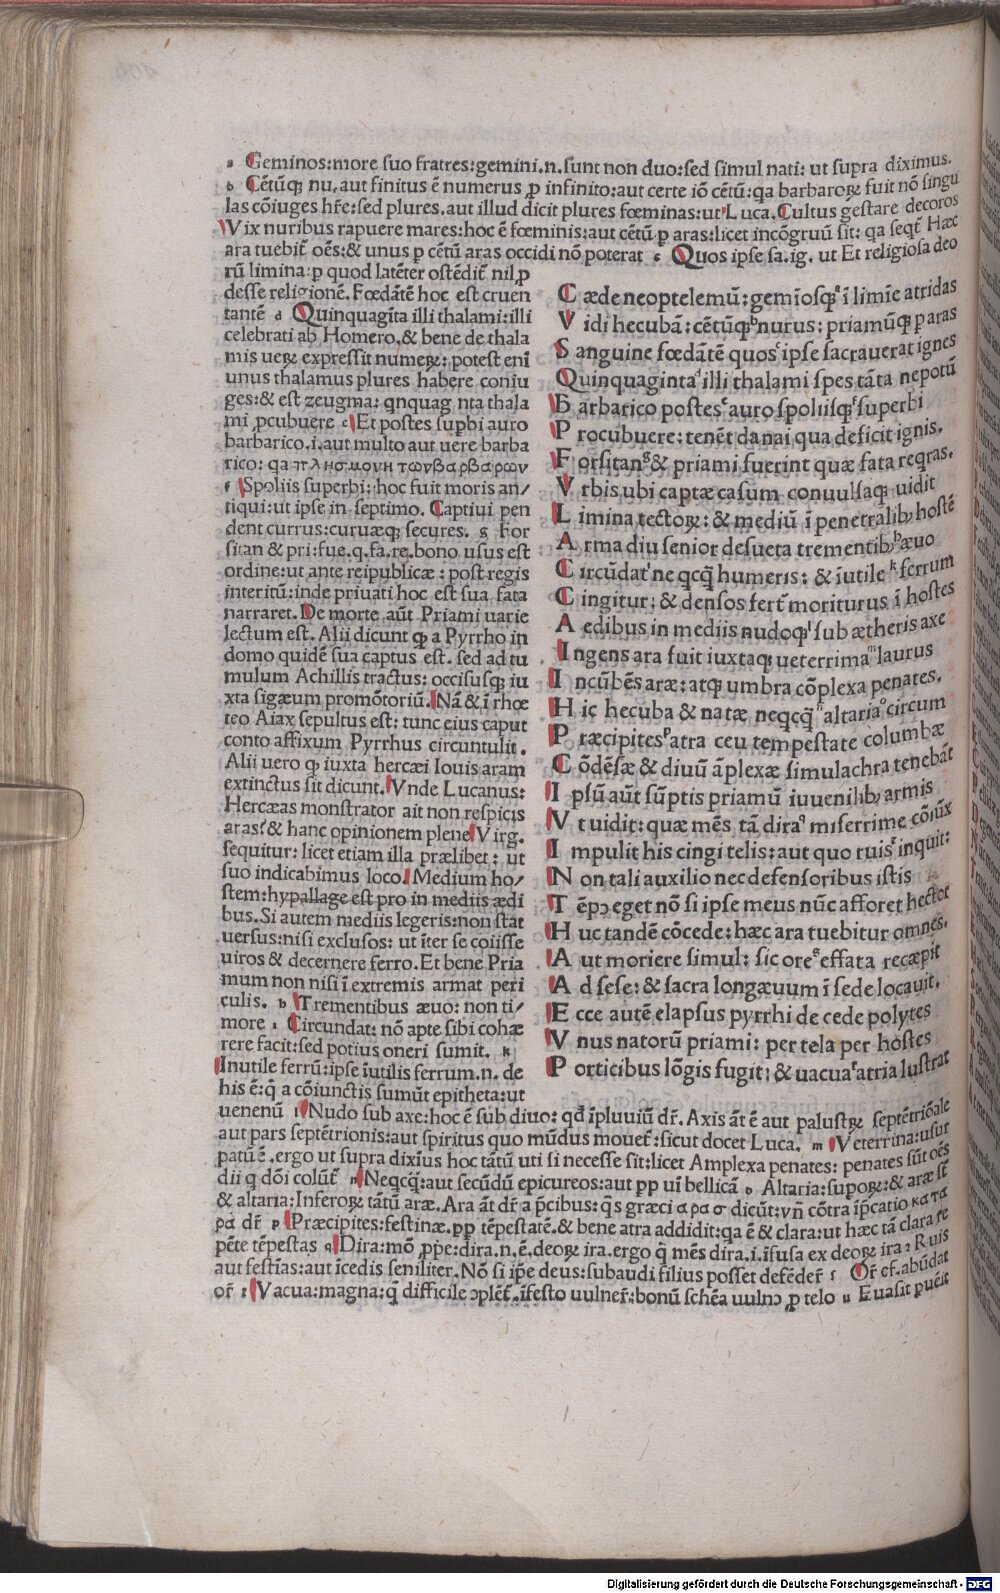 a Geminos:more suo fratres:gemini.n.sunt non duo:sed simul nati: ut supra diximus.
b Cẽtũq; nu. aut finitus ẽ numerus ꝓ infinito:aut certe iõ cẽtũ:qa barbaroꝝ fuit nõ singu
las cõiuges hr̃e:sed plures.aut illud dicit plures fœminas:ut Luca. Cultus gestare decoros
Vix nuribus rapuere mares:hoc ẽ fœminis:aut cẽtũ ꝑ aras:licet incõgruũ sit: qa seqt̃ Hæc
ara tuebit̃ oẽs:& unus ꝑ cẽtũ aras occidi nõ poterat c Quos ipse sa.ig. ut Et religiosa deo
rũ limina: ꝑ quod latẽter ostẽdit̃ nil ꝓ
desse religionẽ. Fœdãtẽ hoc est cruen
tantẽ d Quinquagĩta illi thalami:illi
celebrati ab Homero.& bene de thala
mis ueꝝ expressit numeꝝ: potest enĩ
unus thalamus plures habere coniu
ges:& est zeugma: qnquag nta thala
mi ꝓcubuere e Et postes supbi auro
barbarico.i.aut multo aut uere barba
rico: qa πλησμονη τωνβαρβαρων
f Spoliis superbi: hoc fuit moris an/
tiqui: ut ipse in septimo. Captiui pen
dent currus: curuæq; secures. g For
sitan & pri:fue.q.fa.re.bono usus est
ordine:ut ante reipublicæ : post regis
interitũ: inde priuati hoc est sua fata
narraret. De morte aũt Priami uarie
lectum est. Alii dicunt ꝙ a Pyrrho in
domo quidẽ sua captus est. sed ad tu
mulum Achillis tractus: occisusq; iu
xta sigæum promõtoriũ. Nã & ĩ rhœ
teo Aiax sepultus est: tunc eius caput
conto affixum Pyrrhus circuntulit.
Alii uero ꝙ iuxta hercæi Iouis aram
extinctus sit dicunt. Vnde Lucanus:
Hercæas monstrator ait non respicis
aras?& hanc opinionem plene Virg.
sequitur: licet etiam illa prælibet: ut
suo indicabimus loco. Medium ho/
stem:hypallage est pro in mediis ædi
bus. Si autem mediis legeris:non stat
uersus:nisi exclusos: ut ĩter se coiisse
uiros & decernere ferro. Et bene Pria
mum non nisi ĩ extremis armat peri
culis. h Trementibus æuo: non ti/
more i Circundat: nõ apte sibi cohæ
rere facit:sed potius oneri sumit. k
Inutile ferrũ: ipse ĩutilis ferrum.n. de
his ẽ:q̃ a cõiunctis sumũt epitheta:ut
C æde neoptelemũ: gemĩosq;ᵃ ĩ limĩe atridas
V idi hecubã: cẽtũq;ᵇ nurus: priamũq; ꝑ aras
S anguine fœdãtẽ quosᶜ ipse sacrauerat ignes
Quinquagintaᵈ illi thalami spes tãta nepotũ
B arbarico postesᵉ auro spoliisq;ᶠ superbi
P rocubuere: tenẽt danai qua deficit ignis.
F orsitanᵍ & priami fuerint quæ fata reqras.
V rbis ubi captæ casum conuulsaq; uidit
L imina tectoꝝ: & mediũ ĩ penetralib; hostẽ
A rma diu senior desueta trementib;ʰ æuo
C ircũdatⁱ neqcq̃ humeris: & ĩutileᵏ ferrum
C ingitur: & densos fert̃ moriturus ĩ hostes
A edibus in mediis nudoq;ˡ sub ætheris axe
I ngens ara fuit iuxtaq; ueterrimaᵐ laurus
I ncũbẽs aræ: atq; umbra cõplexa penates.
H ic hecuba & natæ neqcq̃ⁿ altariaᵒ circum
P ræcipitesᵖ atra ceu tempestate columbæ
C õdẽsæ & diuũ ãplexæ simulachra tenebãt
I psũ aũt sũptis priamũ iuuenilib; armis
V t uidit: quæ mẽs tã diraq miserrime cõiũx
I mpulit his cingi telis: aut quo ruisʳ inquit:
N on tali auxilio nec defensoribus istis
T ẽpɔ eget nõ si ipse meus nũc afforet hector
H uc tandẽ cõcede: hæc ara tuebitur omnes.
A ut moriere simul: sic oreˢ effata recæpit
A d sese: & sacra longæuum ĩ sede locauit.
E cce autẽ elapsus pyrrhi de cede polytes
V nus natorũ priami: per tela per hostes
P orticibus lõgis fugit: & uacuaᵗ atria lustrat
uenenũ l Nudo sub axe:hoc ẽ sub diuo: qd̃ ĩpluuiũ dr̃. Axis ãt ẽ aut palustꝝ septẽtriõale
aut pars septẽtrionis:aut spiritus quo mũdus mouet̃:sicut docet Luca. m Veterrina:usur
patũ ẽ.ergo ut supra dixius hoc tãtũ uti si necesse sit:licet Amplexa penates: penates sũt oẽs
dii q dõi colũt̃ n Neqcq̃:aut secũdũ epicureos:aut ꝓp uĩ bellicã o Altaria:supoꝝ:& aræ sẽ
& altaria:Inferoꝝ tãtũ aræ. Ara ãt dr̃ a p̃cibus: q̃s græci αρασ dicũt:vñ cõtra ĩp̃catio κατα
ρα dr̃ p Præcipites:festinæ.ꝓp tẽpestatẽ.& bene atra addidit:qa ẽ & clara:ut hæc tã clara re
pẽte tẽpestas q Dira:mõ ꝓp̃e:dira.n.ẽ.deoꝝ ira.ergo q̃ mẽs dira.i.ĩsusa ex deoꝝ ira r Ruis
aut festĩas:aut ĩcedis seniliter. Nõ si ip̃e deus:subaudi filius posset defẽder̃ s Or̃ ef.abũdat
or̃ t Vacua:magna:q̃ difficile ɔplẽt̃.ĩfesto uulner̃:bonũ schẽa uulnɔ ꝓ telo u Euasit puẽit
Digitalisierung gefördert durch die Deutsche Forschungsgemeinschaft - DFG